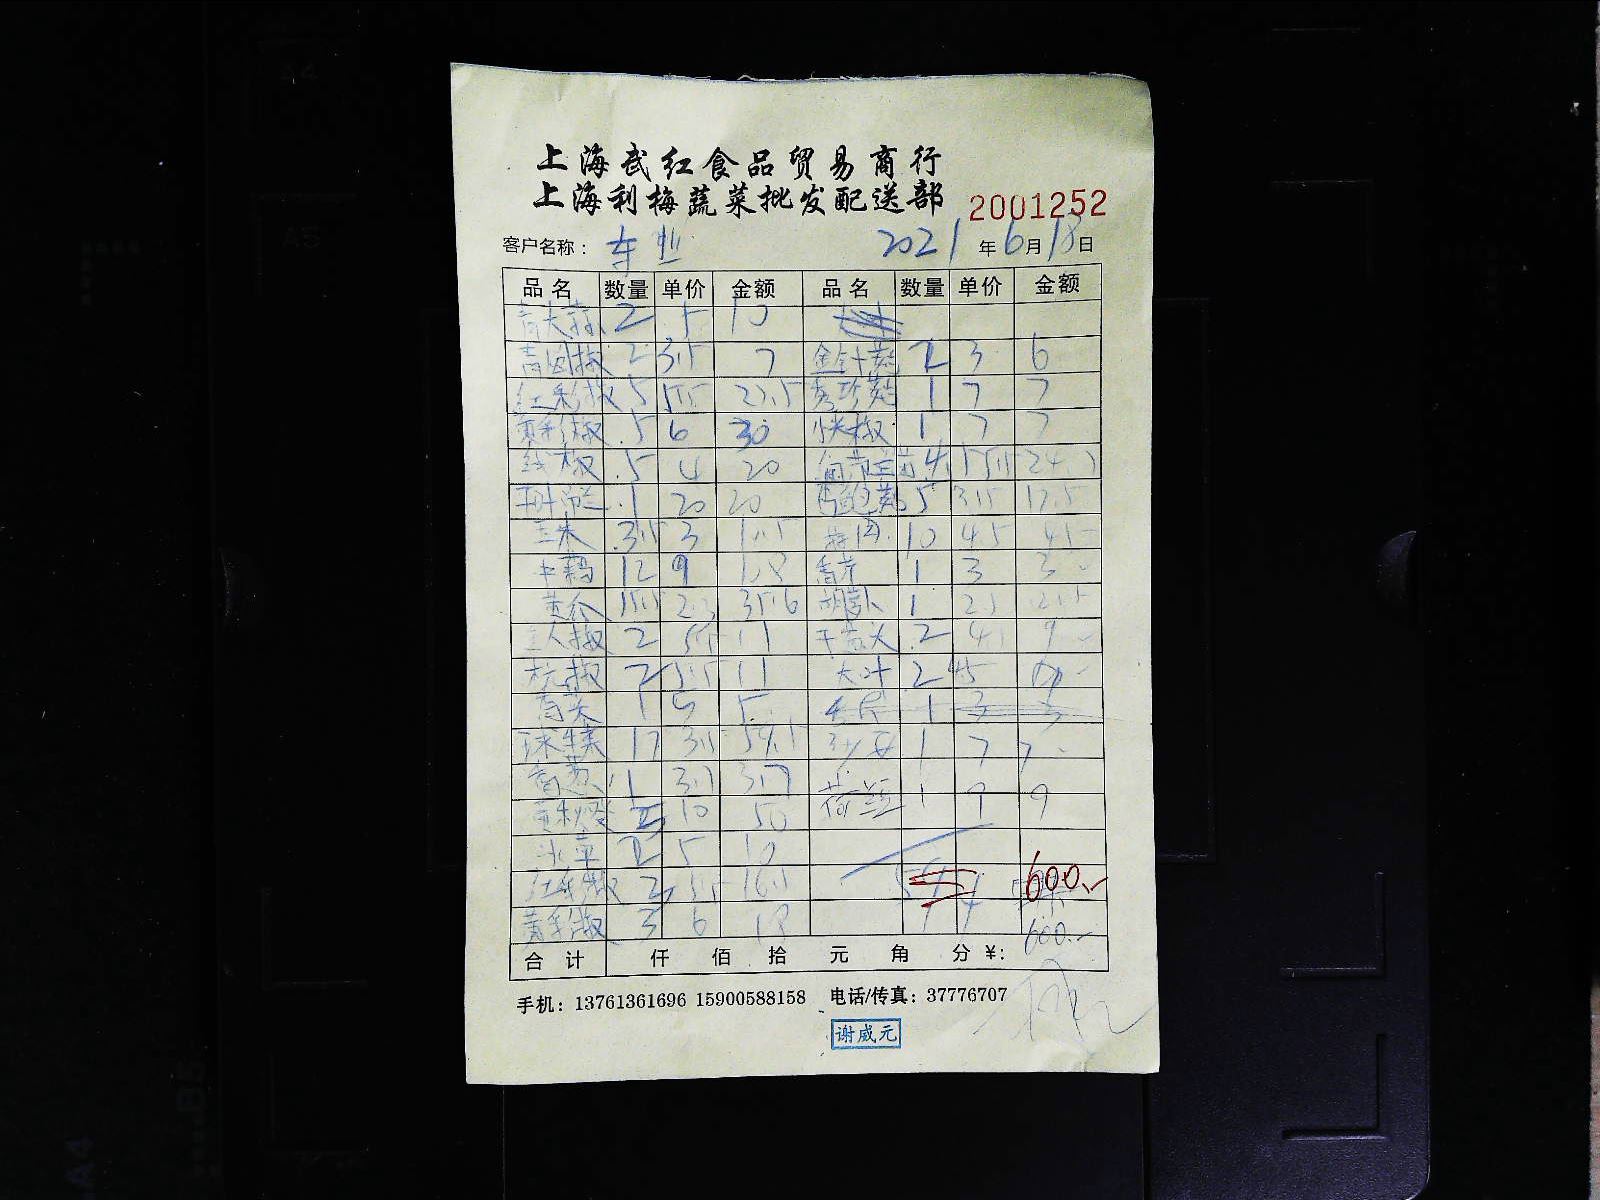 上海武红食品贸易商行
上海利梅蔬菜批发配送部 2001252
客户名称: 2021年6月18日
品名 数量 单价 金额 品名 数量 单价 金额
青大蒜 2 5 10
青圆椒 2 3.5 7 金针菇 2 3 6
红彩椒 5 5.5 27.5 秀珍菇 1 7 7
黄彩椒 5 6 30 尖椒 1 7 7
线椒 5 4 20
1 20 20 5 3.5 17.5
玉米 3.5 3 10.5 10 4.5 45
中藕 12 9 108 香芹 1 3 3
黄瓜 15.5 2.3 35.6 胡萝卜 1 2.5 2.5
美人椒 2 5.5 11 2 4.5 9
杭椒 2 5.5 11 大叶 2
1 5 5 1 3 3
球生菜 17 3.5 59.5 1 7 7
香葱 1 3.7 3.7 荷兰豆 1 9 9
黄秋葵 5 10 50
2 5 10
红彩椒 3 5.5 16.5 600.
黄彩椒 3 6 18 600.
合计 仟 佰 拾 元 角 分 ¥:
手机: 13761361696 15900588158 电话/传真: 37776707
谢威元